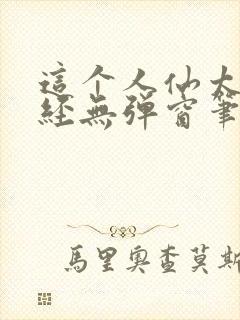 這个人仙太
經無彈窗筆
馬里奧查莫斯